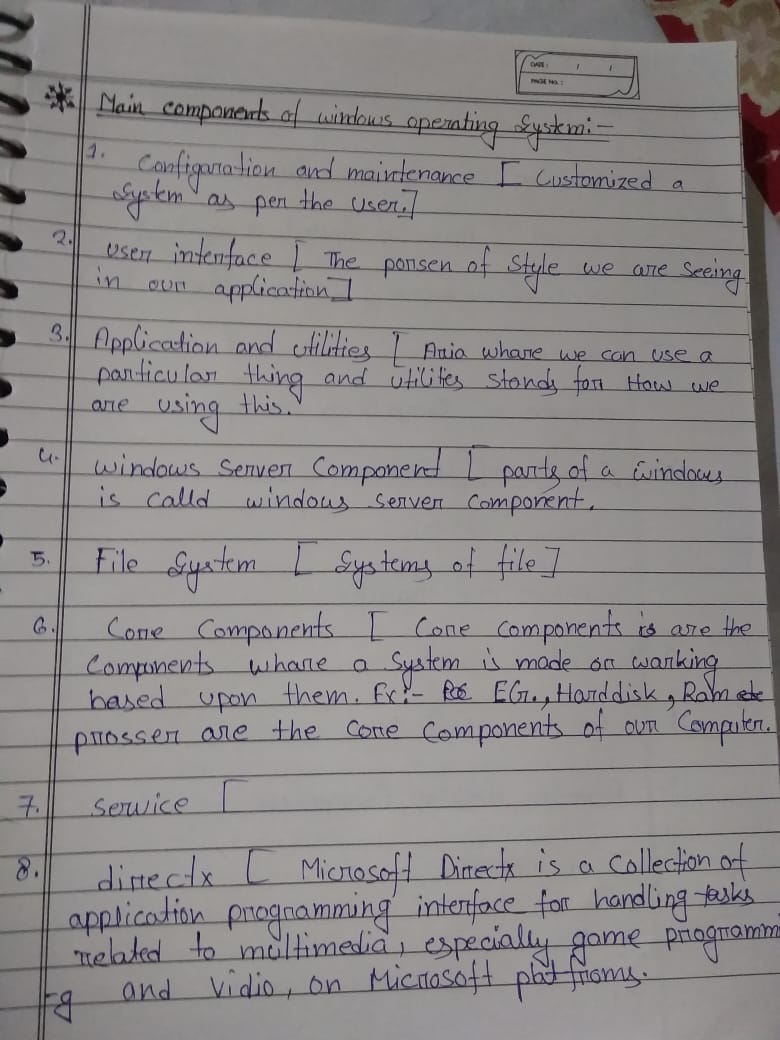 DATE: / /
PAGE NO.:
Main components of windows operating System:-
1. Configaration and maintenance [ Customized a
System as per the user.]
2. User interface [ The porsen of Style we are seeing
in our application]
3. Application and utilities [ Aria whare we can use a
particular thing and utilities stands for How we
are using this.
4. windows Server Component [ parts of a windows
is calld windows server component.
5. File System [ Systems of file ]
6. Core Components [ Core components is are the
Components whare a System is made or warking
based upon them. Ex:- EG., Harddisk, Ram etc
prosser are the core components of our Computer.
7. Service [
8. directx [ Microsoft Directx is a collection of
application programming interface for handling tasks
related to multimedia, especially game programm
-g and vidio, on Microsoft platfroms.